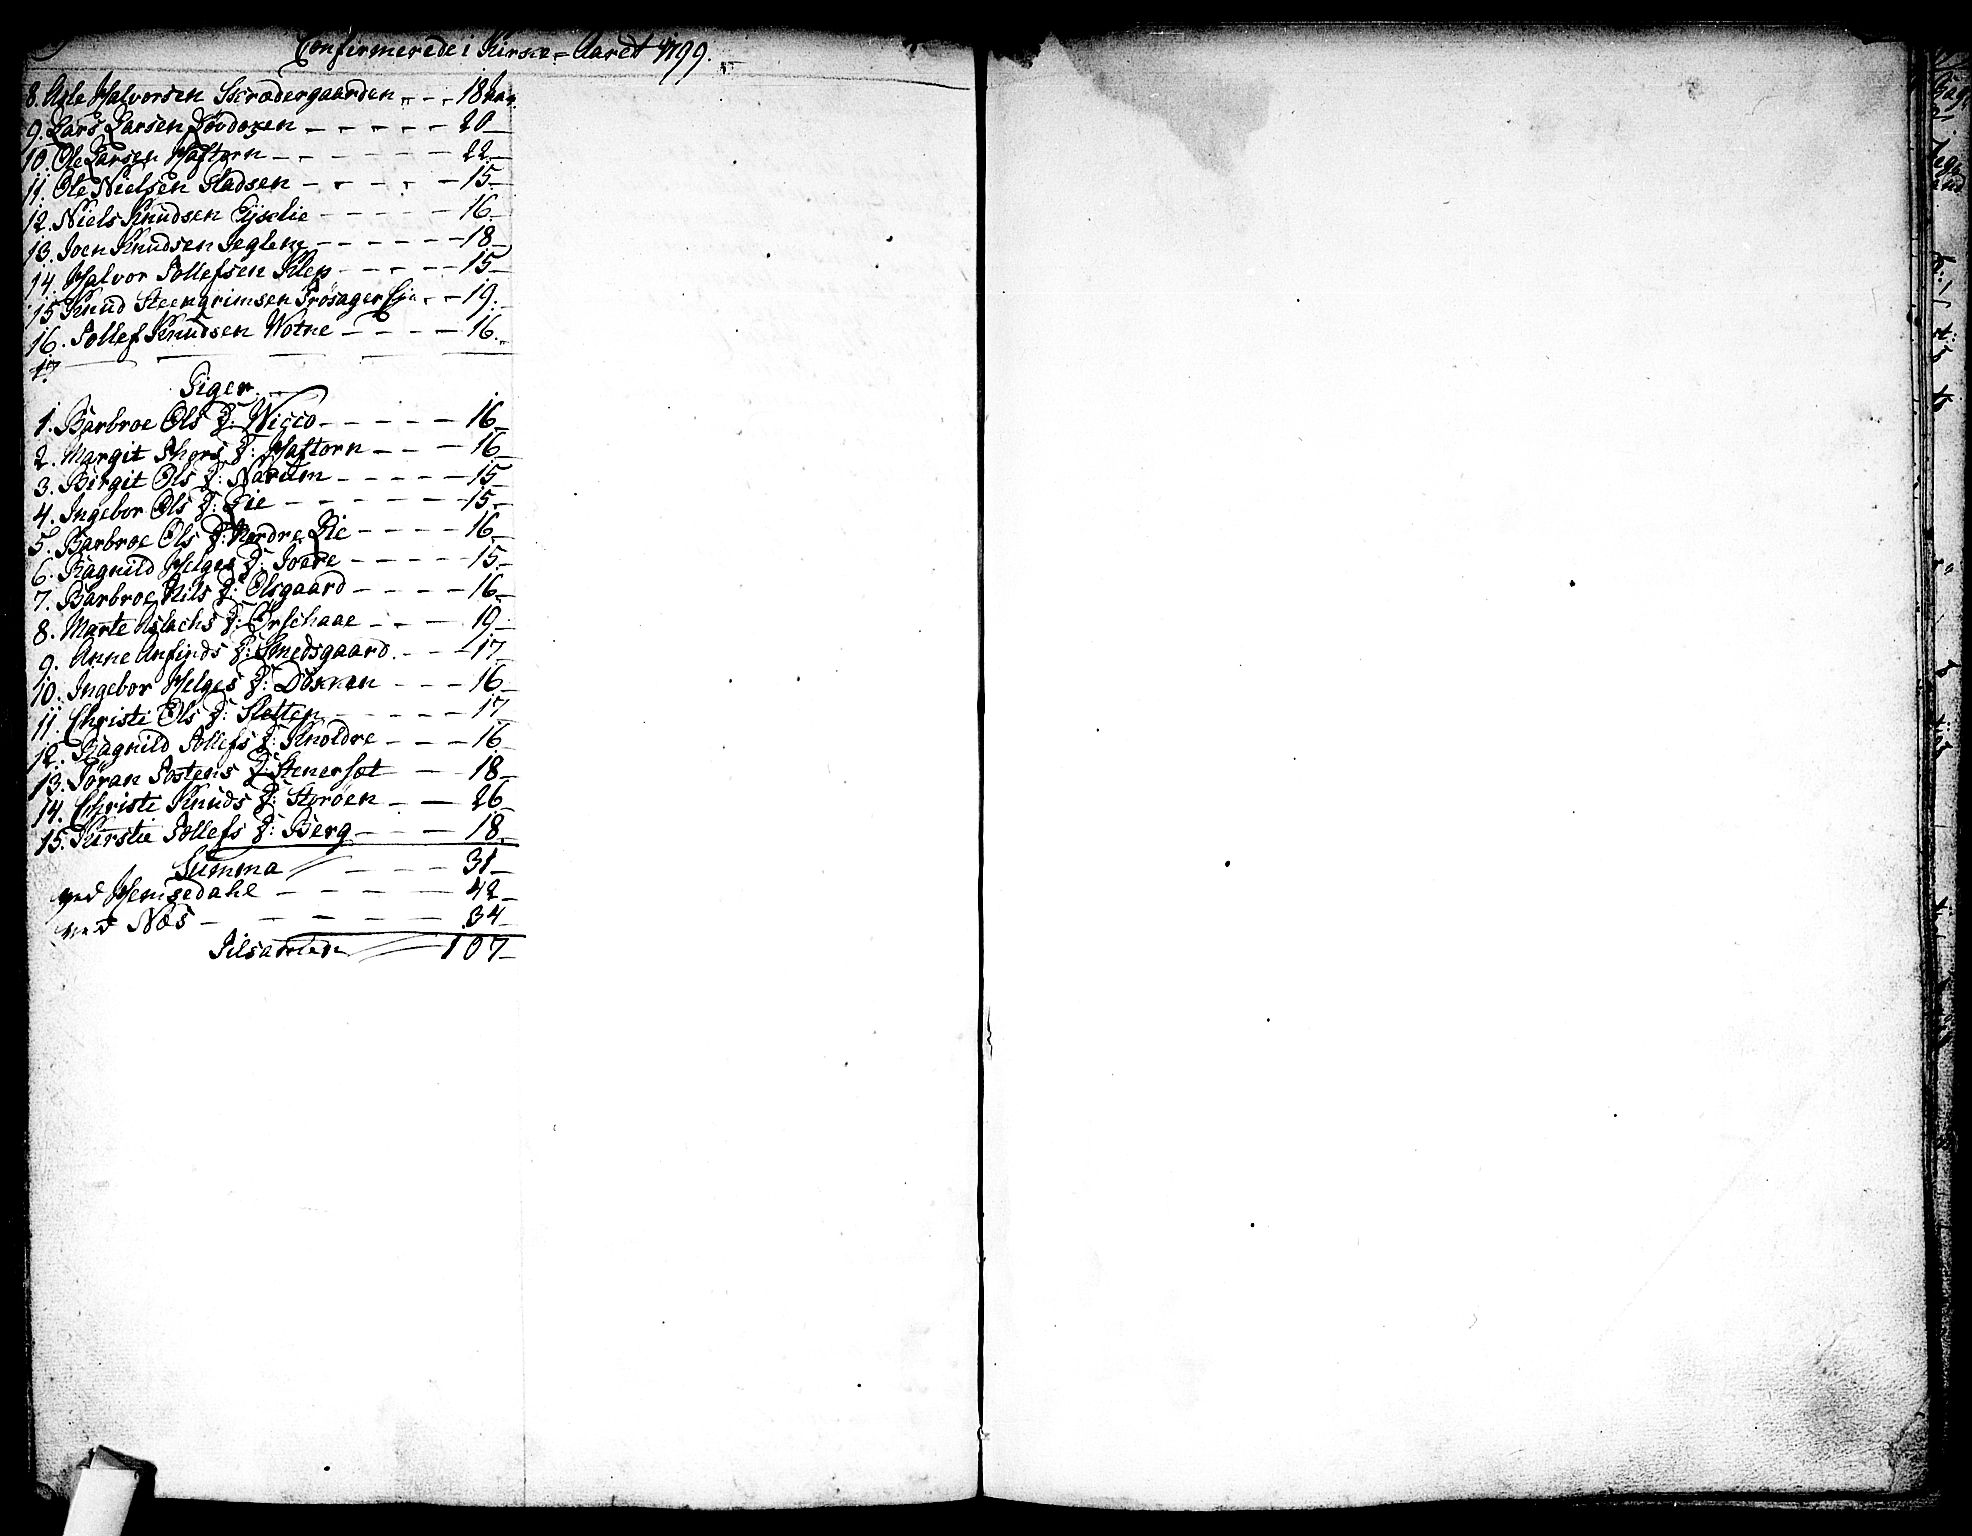 Confirmerede i Kirke-Aaret 1799.
8. Asle Halvorsen Skrædergaarden - - - 18 Aar
9. Lars Larsen Løvdoken - - - - - 20
10. Ole Larsen Haftorn - - - - - 22
11. Ole Nielsen Gladsen - - - - 15
12. Niels Knudsen - - - - 16
13. Joen Knudsen Jeglene - - - - - 18
14. Halvor Tollefsen Klep - - - - - 15
15 Knud Steengrimsen Trøsager - - 19.
16. Tollef Knudsen Wotne - - - - 16.
17
Piger
1. Barbroe Ols D: Wicco - - - - - 16
2. Margit Thors D: Haftorn - - - 16
3. Birgit Ols D: Narum - - - - - 15
4. Ingebor Ols D: Lie - - - - - - 15
5. Barbroe Ols D: Nordre Lie - - - - 16
6. Ragnild Helges D: - - - - 15
7. Barbroe Nils D: Olsgaard - - - - 16
8. Marte Aslachs D: - - - 19
9. Anne Anfinds D: Smedsgaard. - - 17
10. Ingebor Helges D: Døkken - - - 16
11. Christi Ols D: Sletten - - - - - 17
12. Ragnild Tollefs D: Knoldre - - - 16
13. Jøran Tostens D: Stenersæt - - 18
14. Christi Knuds D: Storøen - - 26
15. Kirstie Tollefs D: Berg - - - 18
Summa - - - 31
ved Hemsedahl - - - - - 42
ved Næs - - - - - 34
Tilsamlen 107